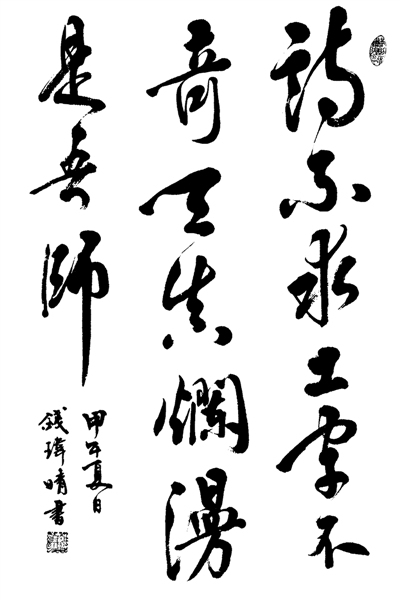 詩不求工字不
奇天真爛漫
是吾師
甲午夏日
錢瑋晴書